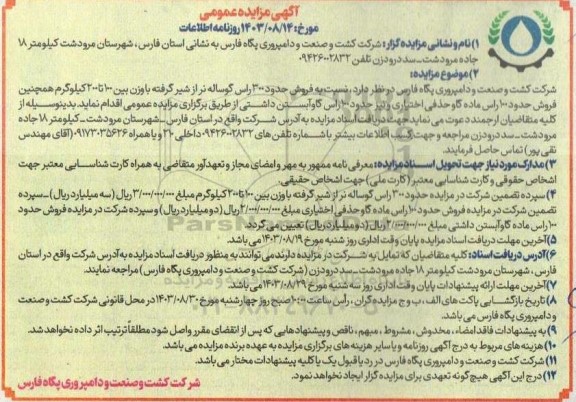 آگهی مزایده عمومی
مورخ: ۱۴۰۳/۰۸/۱۴ روزنامه اطلاعات
۱) نام و نشانی مزایده گزار: شرکت کشت و صنعت و دامپروری پگاه فارس به نشانی استان فارس، شهرستان مرودشت کیلومتر ۱۸
جاده مرودشت ـ سد درودزن تلفن ۰۹۴۲۶۰۰۲۸۳۲
۲) موضوع مزایده:
شرکت کشت و صنعت و دامپروری پگاه فارس در نظر دارد، نسبت به فروش حدود ۳۰۰ راس گوساله نر از شیر گرفته با وزن بین ۱۰۰ تا ۲۰۰ کیلوگرم همچنین
فروش حدود ۱۰۰ راس ماده گاو حذفی اختیاری و نیز حدود ۱۰۰ راس گاو آبستن داشتی از طریق برگزاری مزایده عمومی اقدام نماید. بدینوسیله از
کلیه متقاضیان ارجمند دعوت می نماید جهت دریافت اسناد مزایده به آدرس شرکت واقع در استان فارس ـ شهرستان مرودشت ـ کیلومتر ۱۸ جاده
مرودشت ـ سد درودزن مراجعه و جهت کسب اطلاعات بیشتر با شماره تلفن های ۰۹۴۲۶۰۰۲۸۳۲ داخلی ۲۱۰ و یا همراه ۰۹۱۷۳۰۳۵۶۲۶ (آقای مهندس
تقی پور) تماس حاصل فرمایند.
۳) مدارک مورد نیاز جهت تحویل اسناد مزایده: معرفی نامه ممهور به مهر و امضای مجاز و تعهدآور متقاضی به همراه کارت شناسایی معتبر جهت
اشخاص حقوقی و کارت شناسایی معتبر (کارت ملی) جهت اشخاص حقیقی.
۴) سپرده تضمین شرکت در مزایده حدود ۳۰۰ راس گوساله نر از شیر گرفته با وزن بین ۱۰۰ تا ۲۰۰ کیلوگرم مبلغ ۳/۰۰۰/۰۰۰/۰۰۰ ریال (سه میلیارد ریال) ـ سپرده
تضمین شرکت در مزایده فروش حدود ۱۰۰ راس ماده گاو حذفی اختیاری مبلغ ۲/۰۰۰/۰۰۰/۰۰۰ ریال (دو میلیارد ریال) و سپرده شرکت در مزایده فروش حدود
۱۰۰ راس ماده گاو آبستن داشتی مبلغ ۲/۰۰۰/۰۰۰/۰۰۰ ریال (دو میلیارد ریال) تعیین می گردد.
۵) آخرین مهلت دریافت اسناد مزایده پایان وقت اداری روز شنبه مورخ ۱۴۰۳/۰۸/۱۹ می باشد.
۶) آدرس دریافت اسناد: کلیه متقاضیان که تمایل به شرکت در مزایده دارند می توانند به منظور دریافت اسناد مزایده به آدرس شرکت واقع در استان
فارس، شهرستان مرودشت کیلومتر ۱۸ جاده مرودشت ـ سد درودزن (شرکت کشت و صنعت و دامپروری پگاه فارس) مراجعه نمایند.
۷) آخرین مهلت ارائه پیشنهادات پایان وقت اداری روز سه شنبه مورخ ۱۴۰۳/۰۸/۲۹ می باشد.
۸) تاریخ بازگشایی پاکت های الف، ب و ج مزایده گران، رأس ساعت ۱۰:۰۰ صبح روز چهارشنبه مورخ ۱۴۰۳/۰۸/۳۰ در محل قانونی شرکت کشت و صنعت
و دامپروری پگاه فارس می باشد.
۹) به پیشنهادات فاقد امضاء، مخدوش، مشروط، مبهم، ناقص و پیشنهادهایی که پس از انقضای مقرر واصل شود مطلقاً ترتیب اثر داده نخواهد شد.
۱۰) هزینه های مربوط به درج آگهی روزنامه و یا سایر هزینه های برگزاری مزایده به عهده برنده مزایده می باشد.
۱۱) شرکت کشت و صنعت و دامپروری پگاه فارس در رد یا قبول یک یا کلیه پیشنهادات مختار می باشد.
۱۲) درج این آگهی هیچ گونه تعهدی برای مزایده گزار ایجاد نخواهد نمود.
شرکت کشت و صنعت و دامپروری پگاه فارس